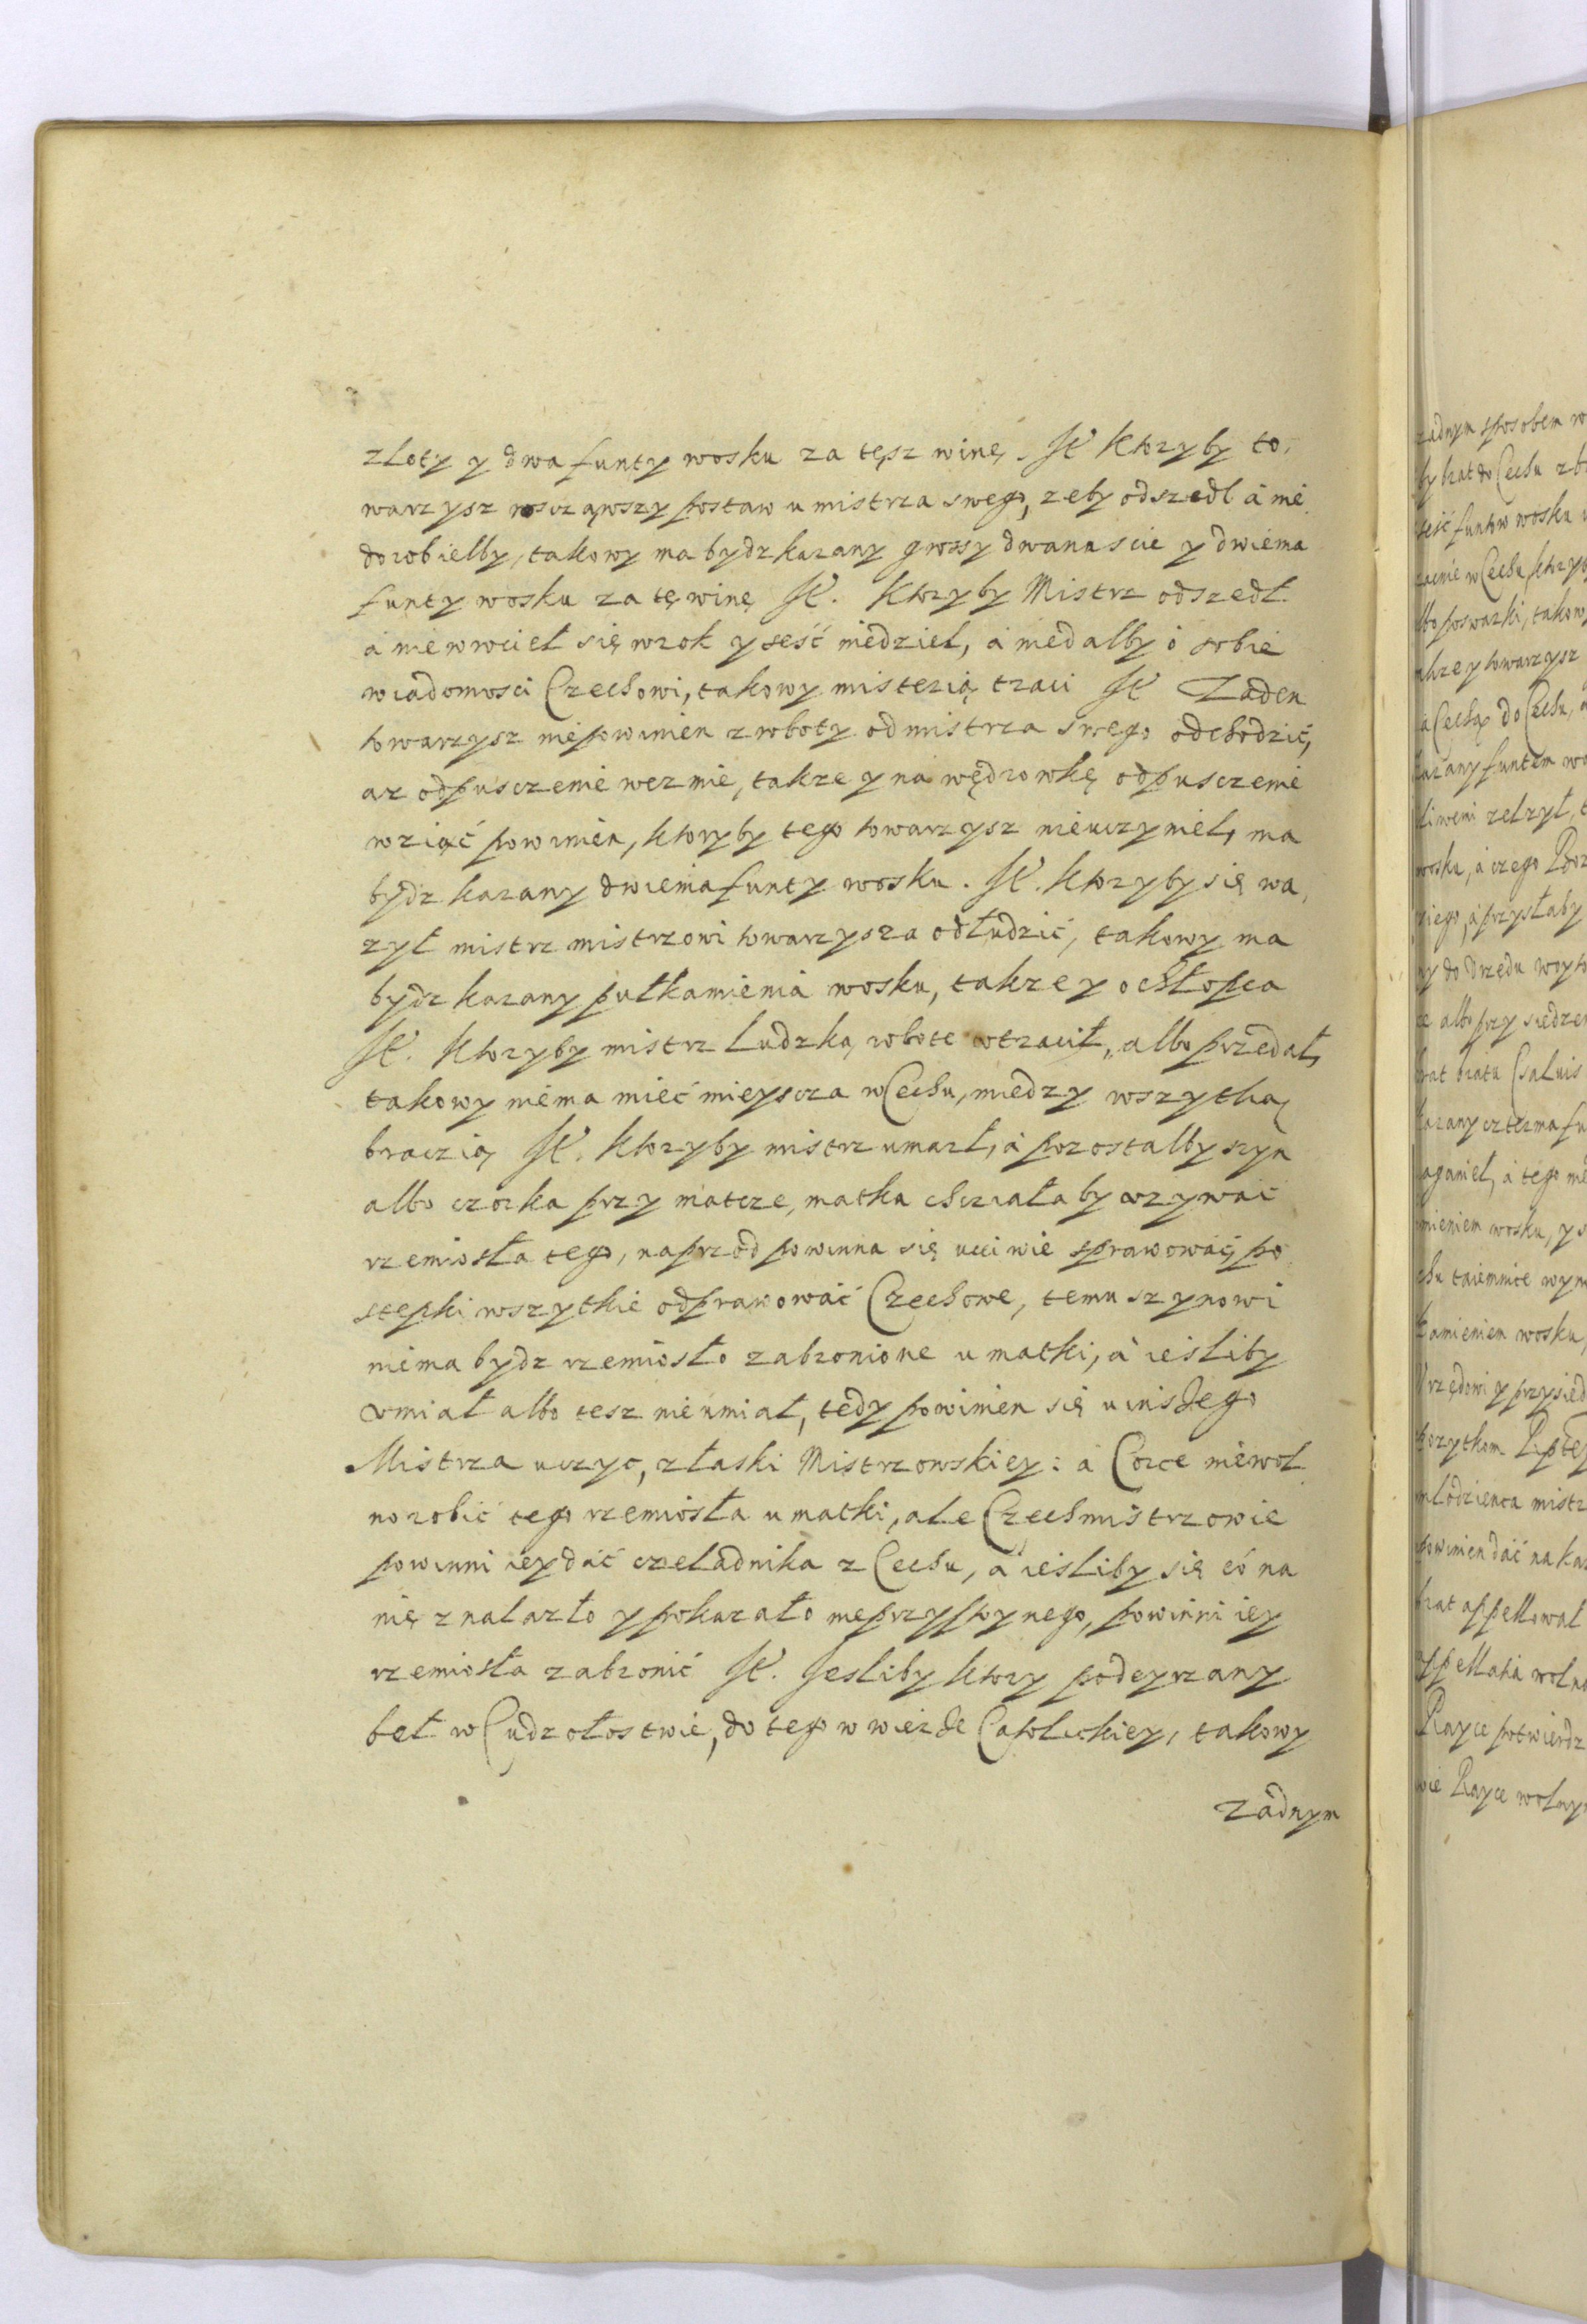 złoty y dwa funty wosku za tęsz winę. It. Ktoryby to,
warzysz roscząwszy postaw u mistrza swego, zeby odszedl á nie
dorobielby, takowy ma bydz karany groszy dwanascie y dwiema
funty wosku za tę winę It. Ktoryby Mistrz odszedł
á niewrociel się w rok y seść niedziel, á niedalby o sobie
wiadomosci Czechowi, takowy misterią traci It Zaden
towarzysz niepowinien z roboty od mistrza swego odchodzić,
az odpusczenie wezmie, takze y na wędrowkę odpusczenie
wziąć powinien, ktoryby tego towarzysz nieuczyniel, ma
bydz karany dwiema funty wosku. It. ktoryby się wa,
zył mistrz mistrzowi towarzysza odłudzić, takowy ma
bydz karany pułkamienia wosku, takze y o chłopca
It. Ktoryby mistrz ludzką robote utracił, albo przedał,
takowy niema mieć mieyscza w Cechu, miedzy wszytką
braczią It. Ktoryby mistrz umarł, á pozostalby szyn
albo czorka przy matcze, matka chcziałaby uzywać
rzemiosła tego, naprzod powinna się ucciwie sprawować, po
stepki wszytkie odprawować Czechowe, temu szynowi
niema bydz rzemiosło zabronione u matki, á iesliby
umiał albo tesz nieumiał, tedy powinien się u inszego
Mistrza uczyc, z łaski Mistrzowskiey: á Corce niewol
no robić tego rzemiosła u matki, ale Czechmistrzowie
powinni iey dać czeladnika z Cechu, á iesliby się co na
nię znalazło y pokazało nieprzystoynego, powinni iey
rzemiosła zabronić It. Jesliby ktory podeyrzany
beł w Cudzołostwie, do tego w wierze Catolickiey, takowy
zadnym
zadnym sposobem w
by brat do Cechu
funtow wosku
w Cechu, ktoryb
poswarki, takow
y towarzysz
do Cechu,
karany funtem wo
zelzył,
wosku, á czego
przysłaby
do Urzędu woyto
albo przy siedzen
brat bratu
karany czterma fu
á tego nie
mieniem wosku, y
chu taiemnice wyn
kamieniem wosku,
Urzędowi y przysied
pozytkom
mlodzienca mistr
powinien dáć na
brat appellowal
appellatia wolno
Rayce potwierdz
Rayce wolny